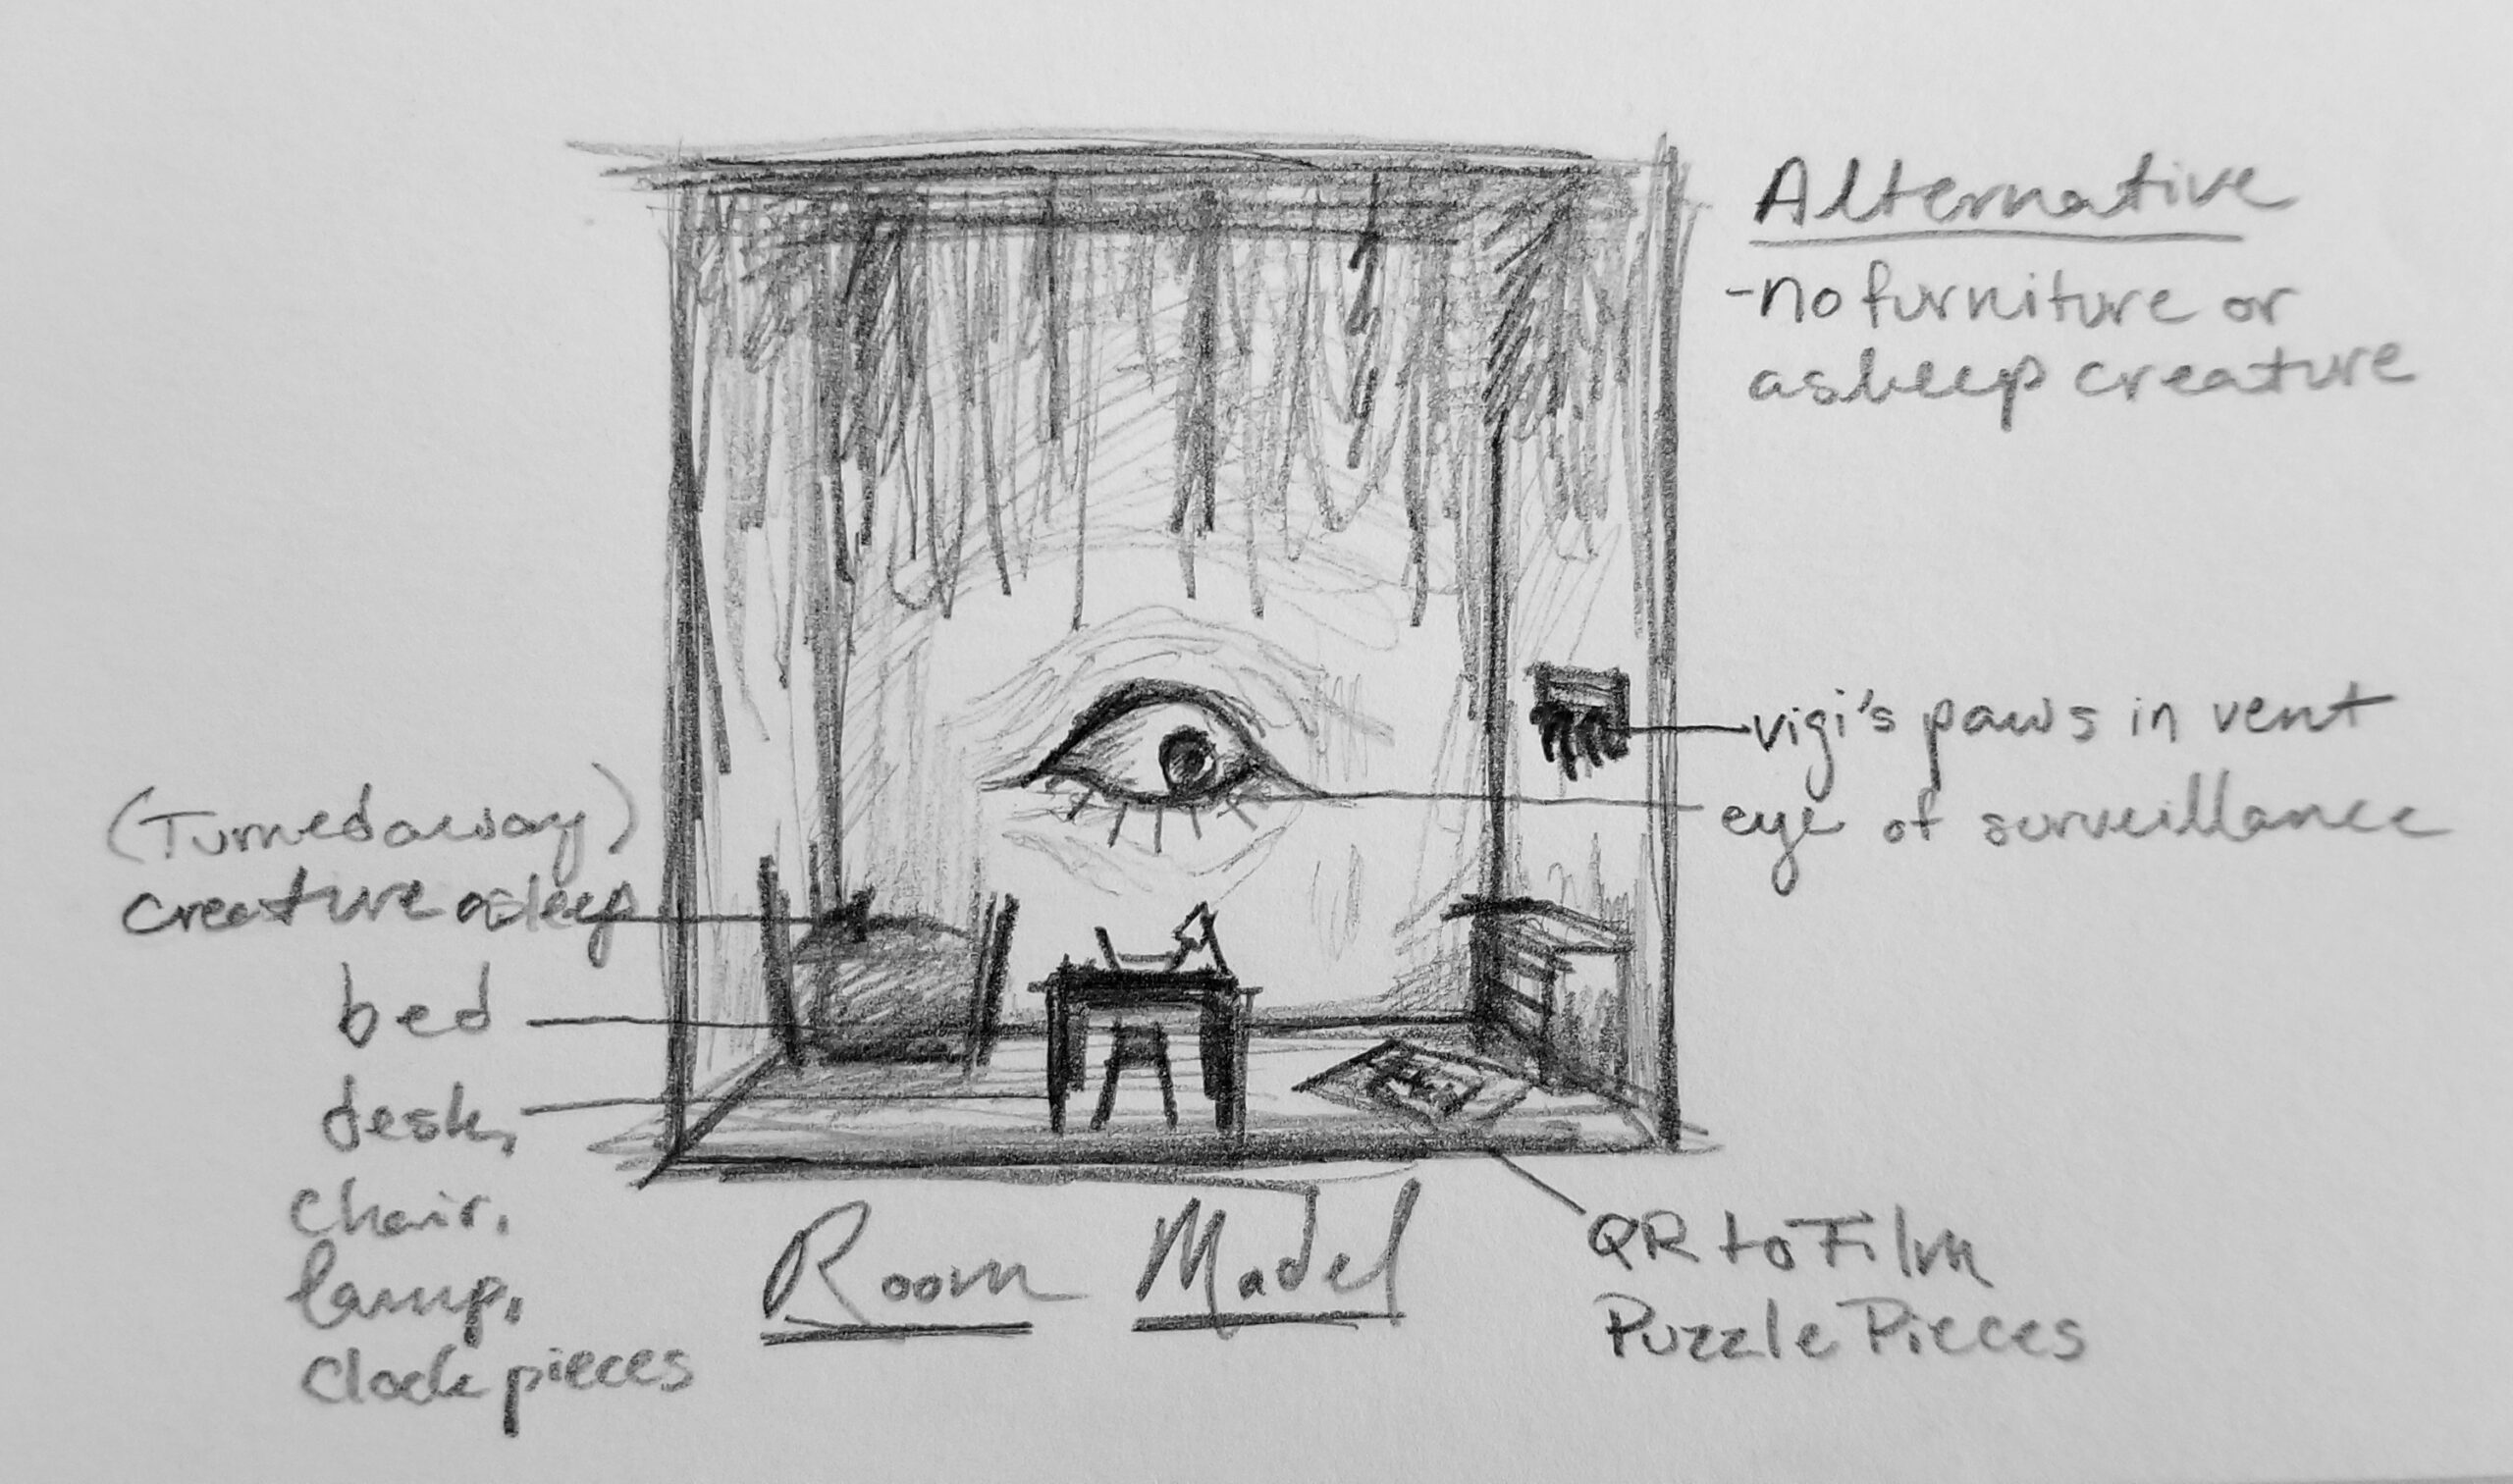 Alternative
-no furniture or
asleep creature
vigi's paws in vent
eye of surveillance
(Turned away)
creature asleep
bed
desk,
chair,
lamp,
clock pieces
Room Model
QR to Film
Puzzle Pieces